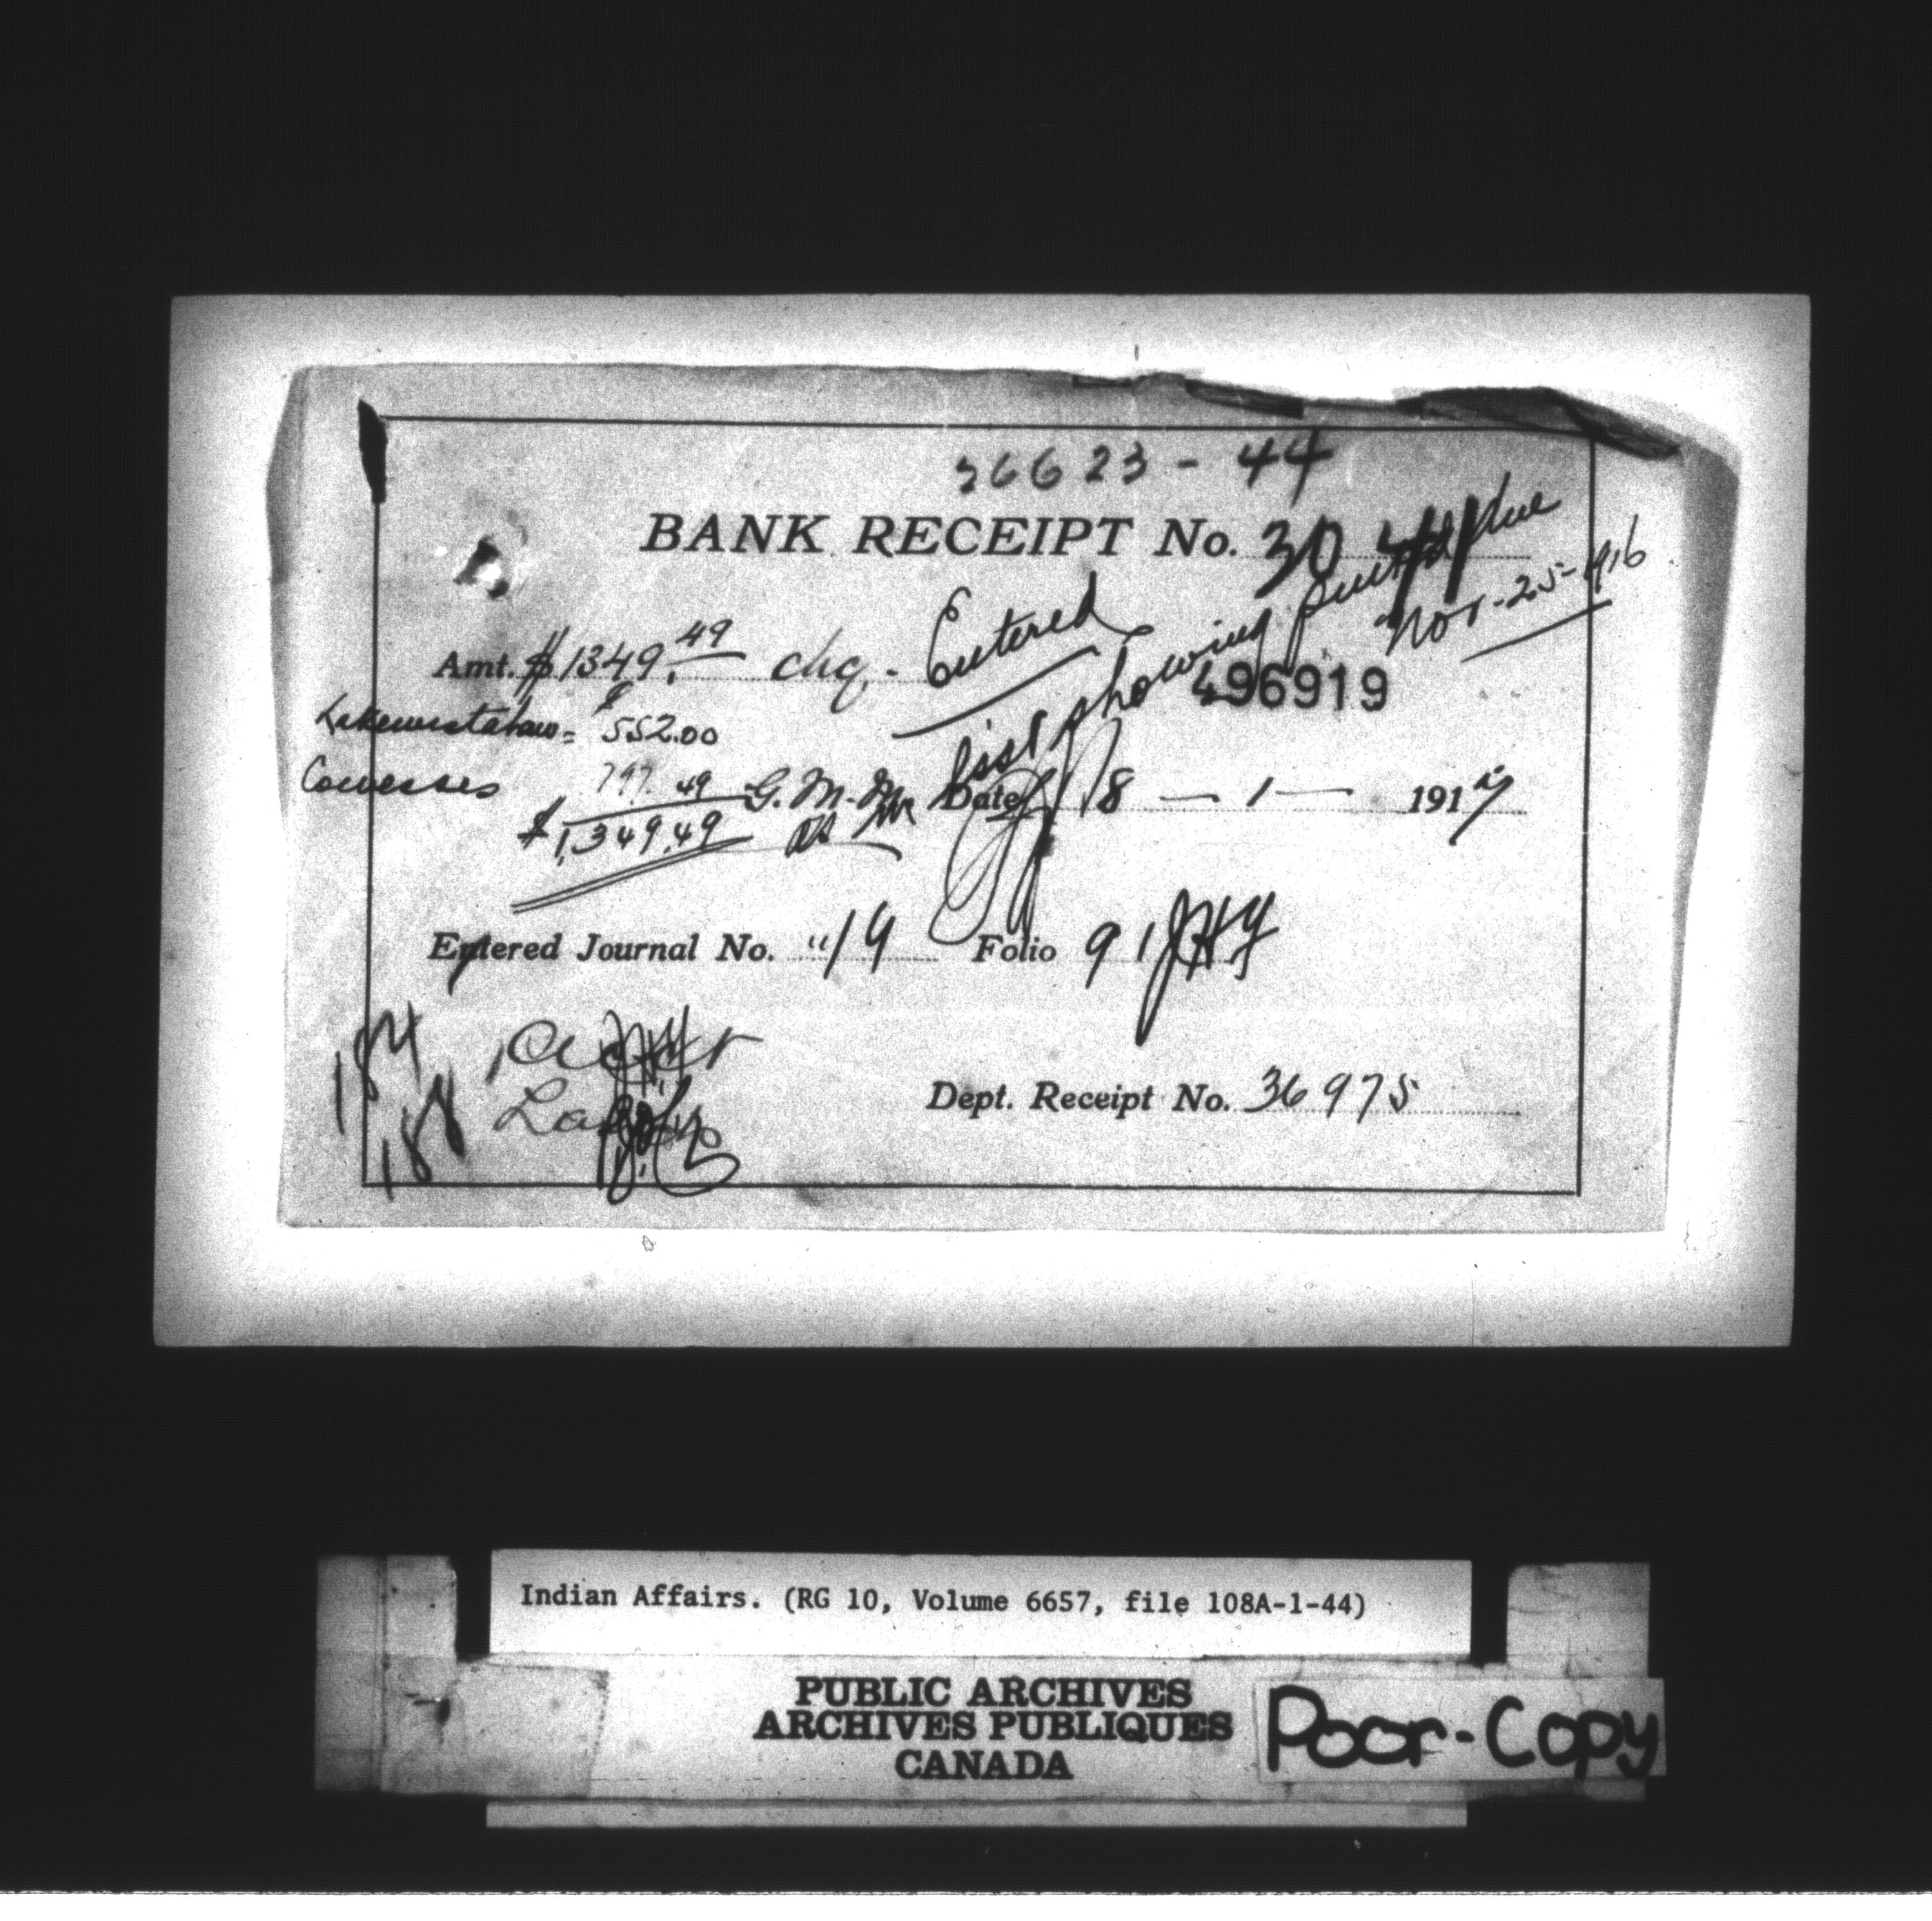 26623-44
BANK RECEIPT No. 3041
Amt. $1349.49 chq. Entered
List showing due
Nov-25-1916
496919
Kakewistahaw = $552.00
Cowesses 797.49
$1,349.49
G. M. M.
Date 18 - 1 - 1917
Entered Journal No. "19 Folio 91
184
188
Dept. Receipt No. 36975
Indian Affairs. (RG 10, Volume 6657, file 108A-1-44)
PUBLIC ARCHIVES
ARCHIVES PUBLIQUES
CANADA
Poor-Copy